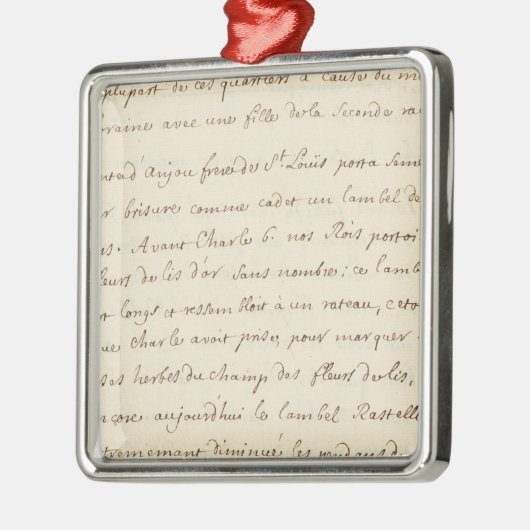 plupart de ces quartiers a cause du m
raine avec une fille de la seconde ra
d'Anjou frere de St. Louis porta seme
brisure comme cadet un lambel de
s. Avant Charle 6. nos Rois portoi
leurs de lis d'or sans nombre; ce lamb
longs et ressembloit à un rateau, c eto
ue Charle avoit prises pour marquer
ses herbes du champ des fleurs de lis,
nçore aujourd'hui le lambel Rastelle
tremement diminué les pendans de